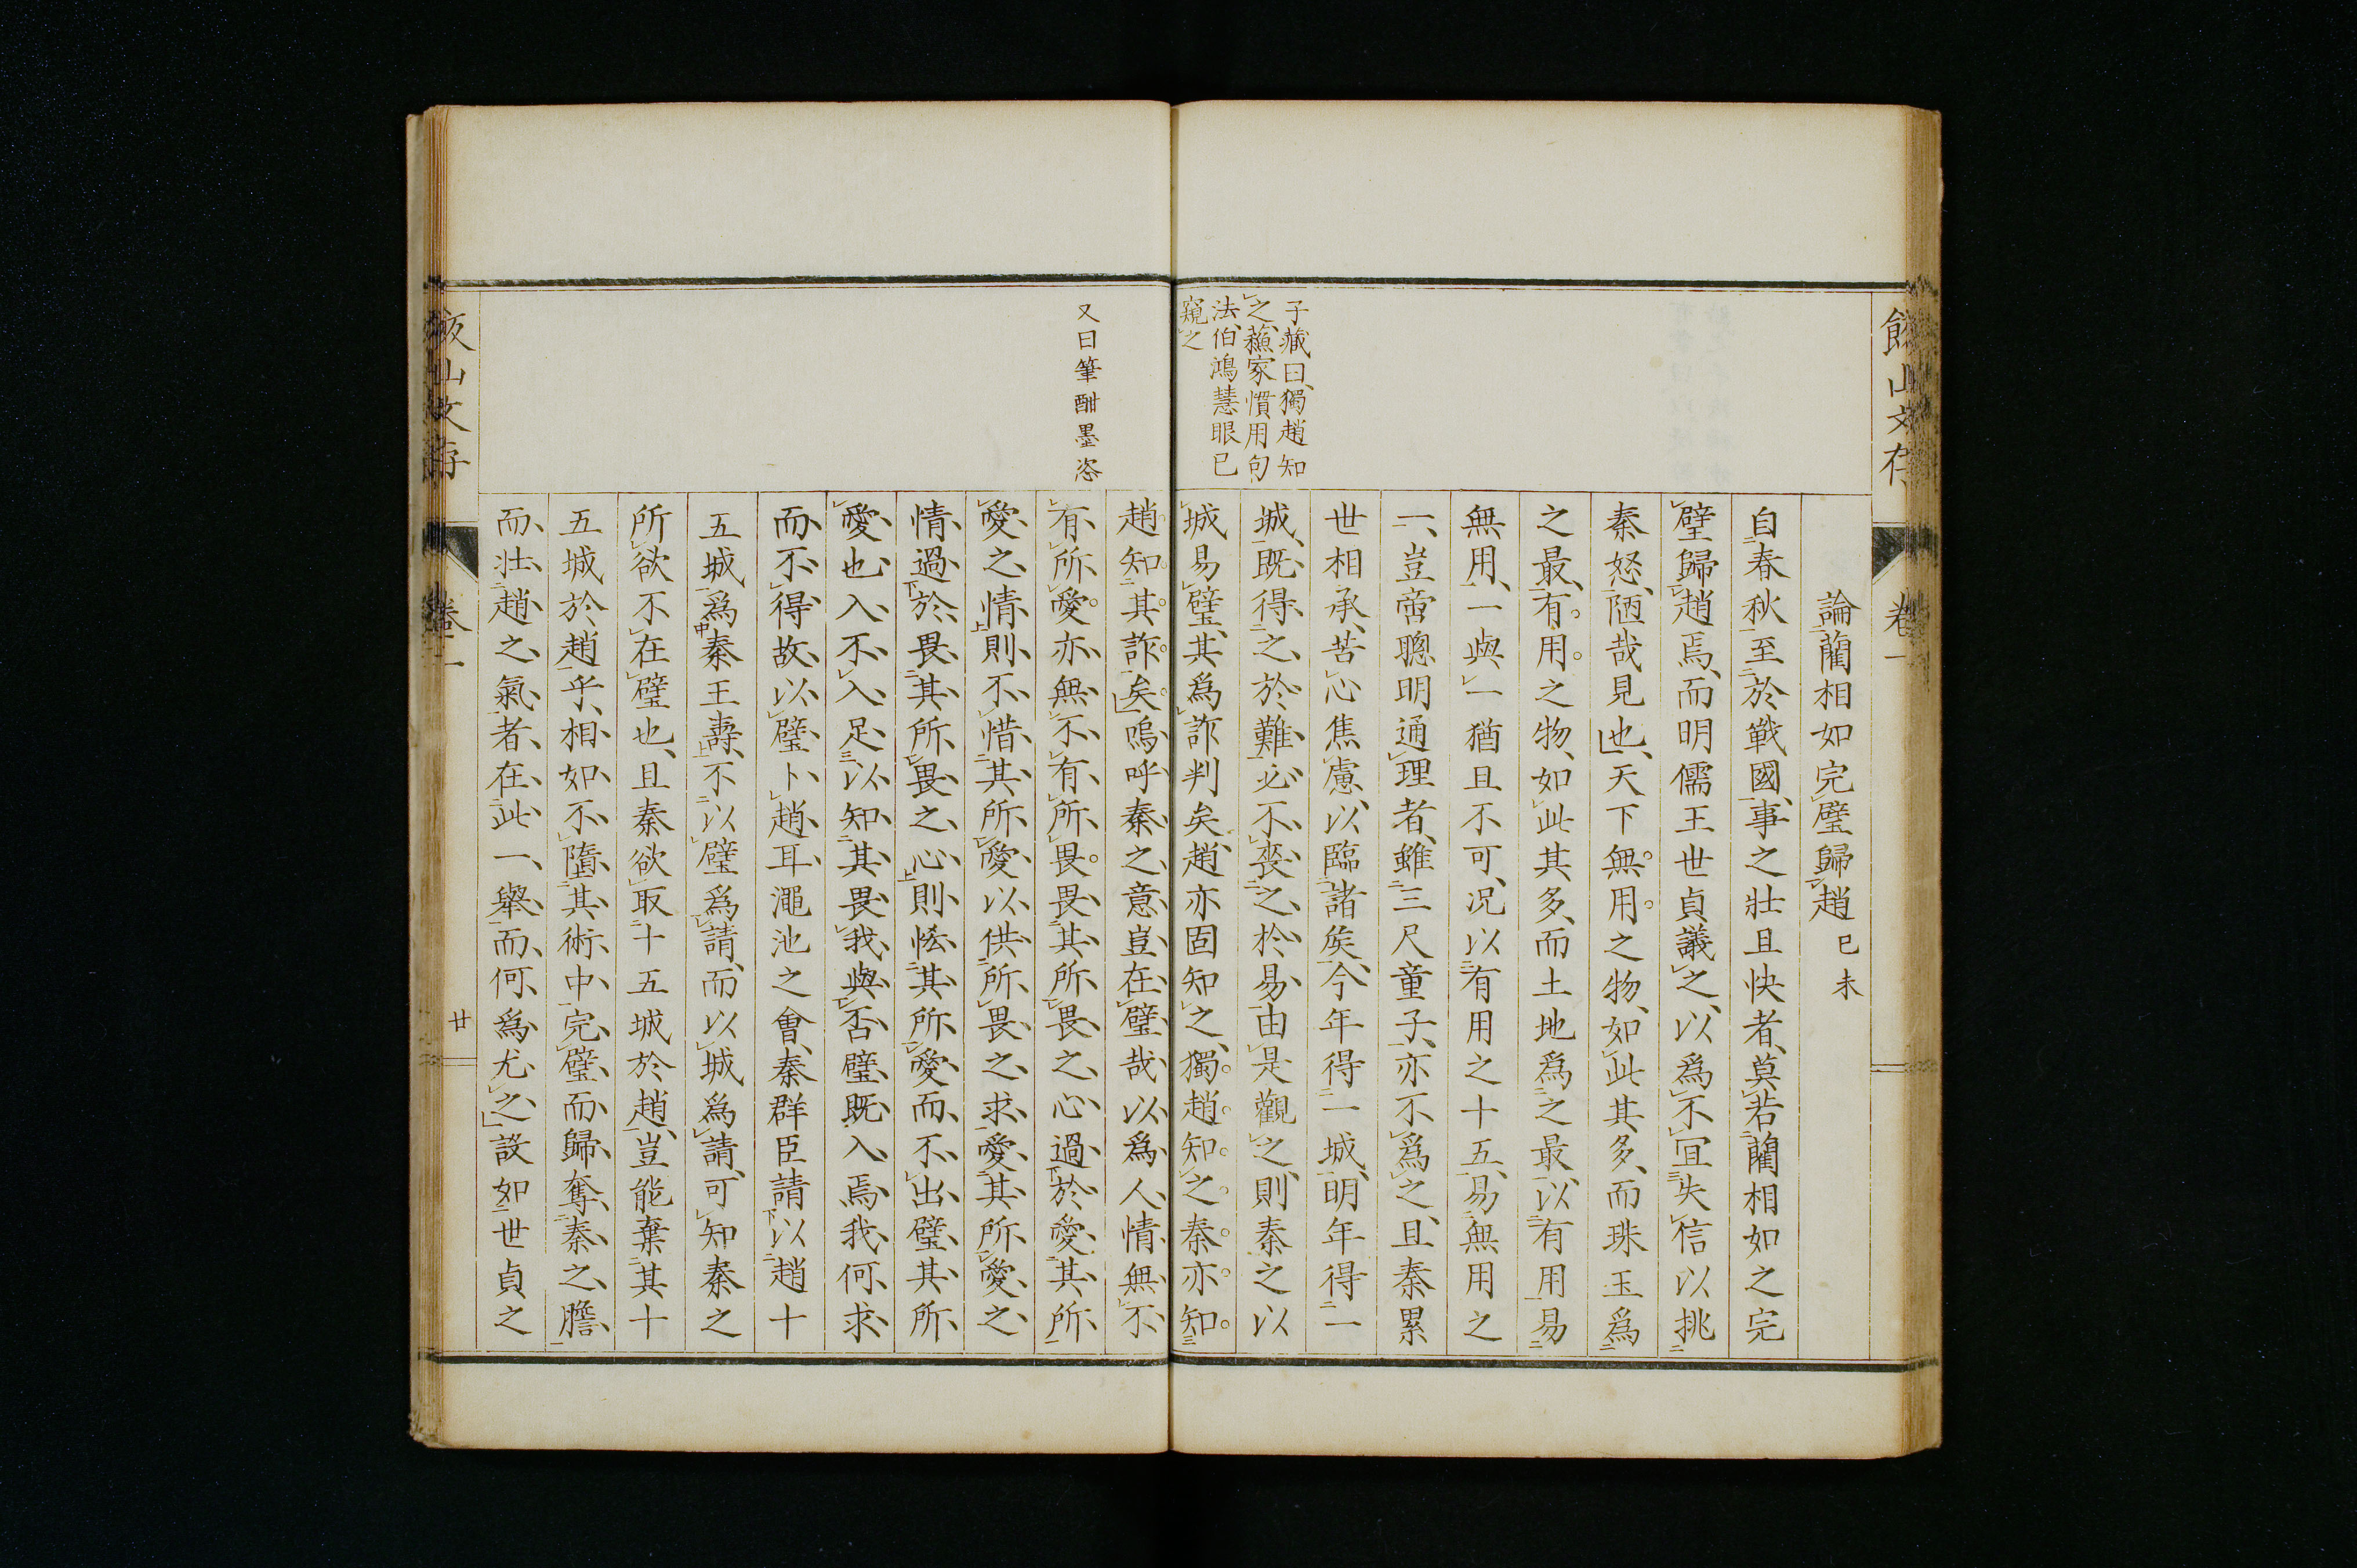 卷一
論藺相如完璧歸趙 己未
自春秋至於戰國事之壯且快者莫若藺相如之完
璧歸趙焉、而明儒王世貞議之、以爲不宜失信以挑
秦怒、陋哉見也、天下無用之物、如此其多、而珠玉爲
之最、有用之物、如此其多、而土地爲之最、以有用易
無用、一與一猶且不可、况以有用之十五、易無用之
一、豈啻聰明通理者、雖三尺童子、亦不爲之、且秦累
世相承、苦心焦慮、以臨諸矦、今年得一城、明年得一
城、既得之於難、必不喪之於易、由是觀之、則秦之以
城易璧、其爲詐判矣、趙亦固知之、獨趙知之、秦亦知
子藏曰、獨趙知
之、蘓家慣用句
法、伯鴻慧眼已
窺之
趙知其詐矣、嗚呼秦之意豈在璧哉、以爲人情無不
有所愛、亦無不有所畏、畏其所畏之心、過於愛其所
愛之情、則不惜其所愛、以供所畏之求、愛其所愛之
情過於畏其所畏之心、則恡其所愛而不出、璧其所
愛也、入不入、足以知其畏我與否、璧既入焉、我何求
而不得、故以璧卜趙耳、澠池之會、秦群臣請以趙十
五城爲秦王壽、不以璧爲請、而以城爲請、可知秦之
所欲不在璧也、且秦欲取十五城於趙、豈能棄其十
五城於趙乎、相如不墮其術中、完璧而歸、奪秦之膽、
而壯趙之氣者、在此一舉、而何爲尤之、設如世貞之
又曰筆酣墨恣
卷一
廿